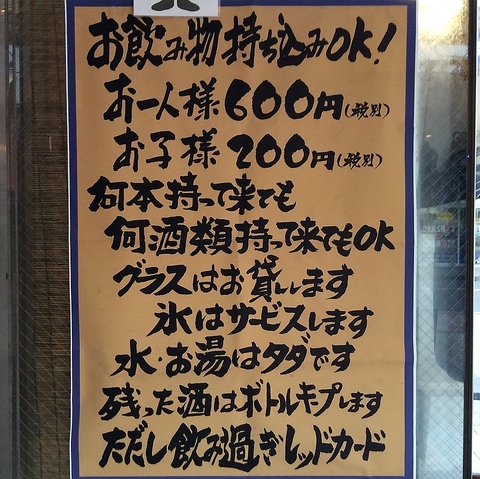 お飲み物持ち込みOK!
お一人様600円(税別)
お子様200円(税別)
何本持って来ても
何酒類持って来てもOK
グラスはお貸しします
氷はサービスします
水・お湯はタダです
残った酒はボトルキープします
ただし飲み過ぎレッドカード